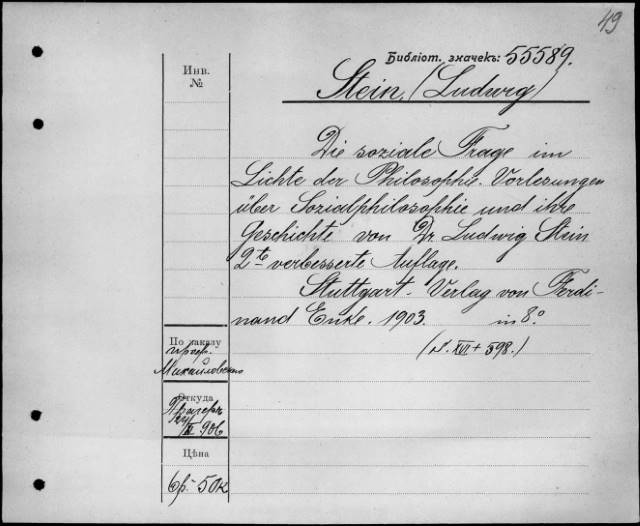 49
Библіот. значекъ: 55589.
Инв.
№
Stein, (Ludwig)
Die soziale Frage im
Lichte der Philosophie. Vorlesungen
über Sozialphilosophie und ihre
Geschichte von Dr. Ludwig Stein
2te verbesserte Auflage.
Stuttgart. Verlag von Ferdi-
nand Enke. 1903. in 8.º
(S. XVI + 598.)
По заказу
проф.
Михайловскаго
Откуда
906
Цѣна
6р. 50к